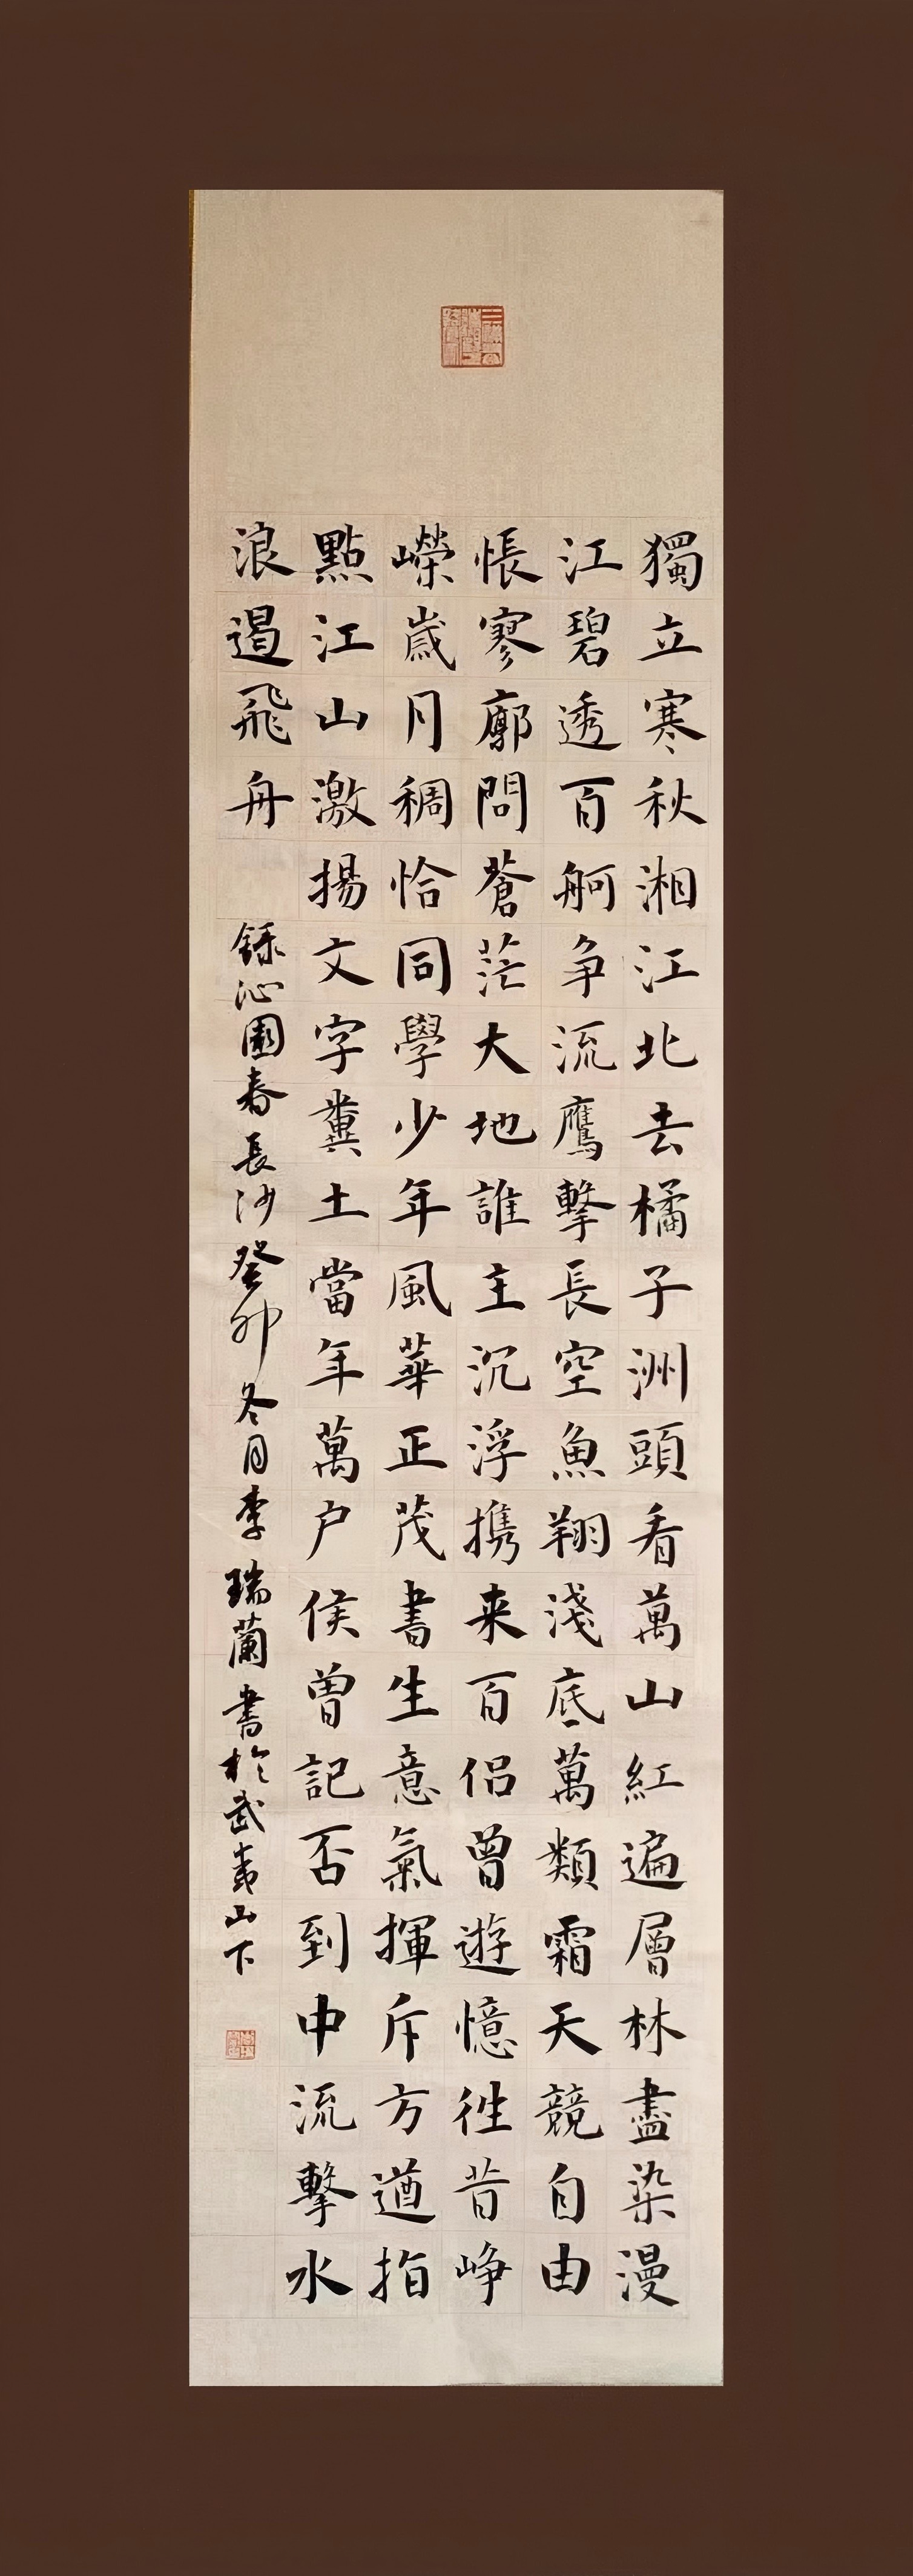 獨立寒秋湘江北去橘子洲頭看萬山紅遍層林盡染漫
江碧透百舸争流鷹擊長空魚翔淺底萬類霜天競自由
悵寥廓問蒼茫大地誰主沉浮携来百侣曾遊憶徃昔峥
嶸歲月稠恰同學少年風華正茂書生意氣揮斥方遒指
點江山激揚文字糞土當年萬户侯曾記否到中流擊水
浪遏飛舟 録沁園春長沙癸卯冬月李瑞蘭書於武夷山下